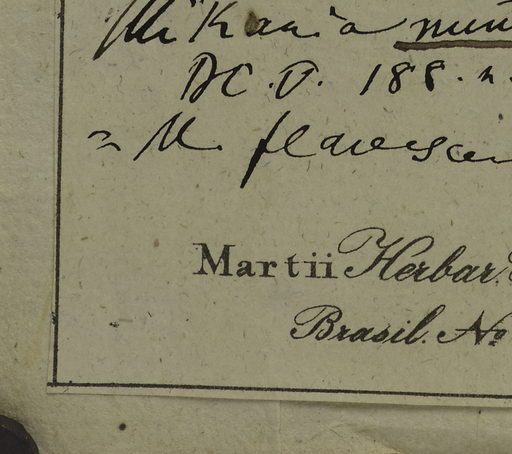 Mikania
DC. V. 188. n.
= M. flavescen
Martii Herbar.
Brasil. No